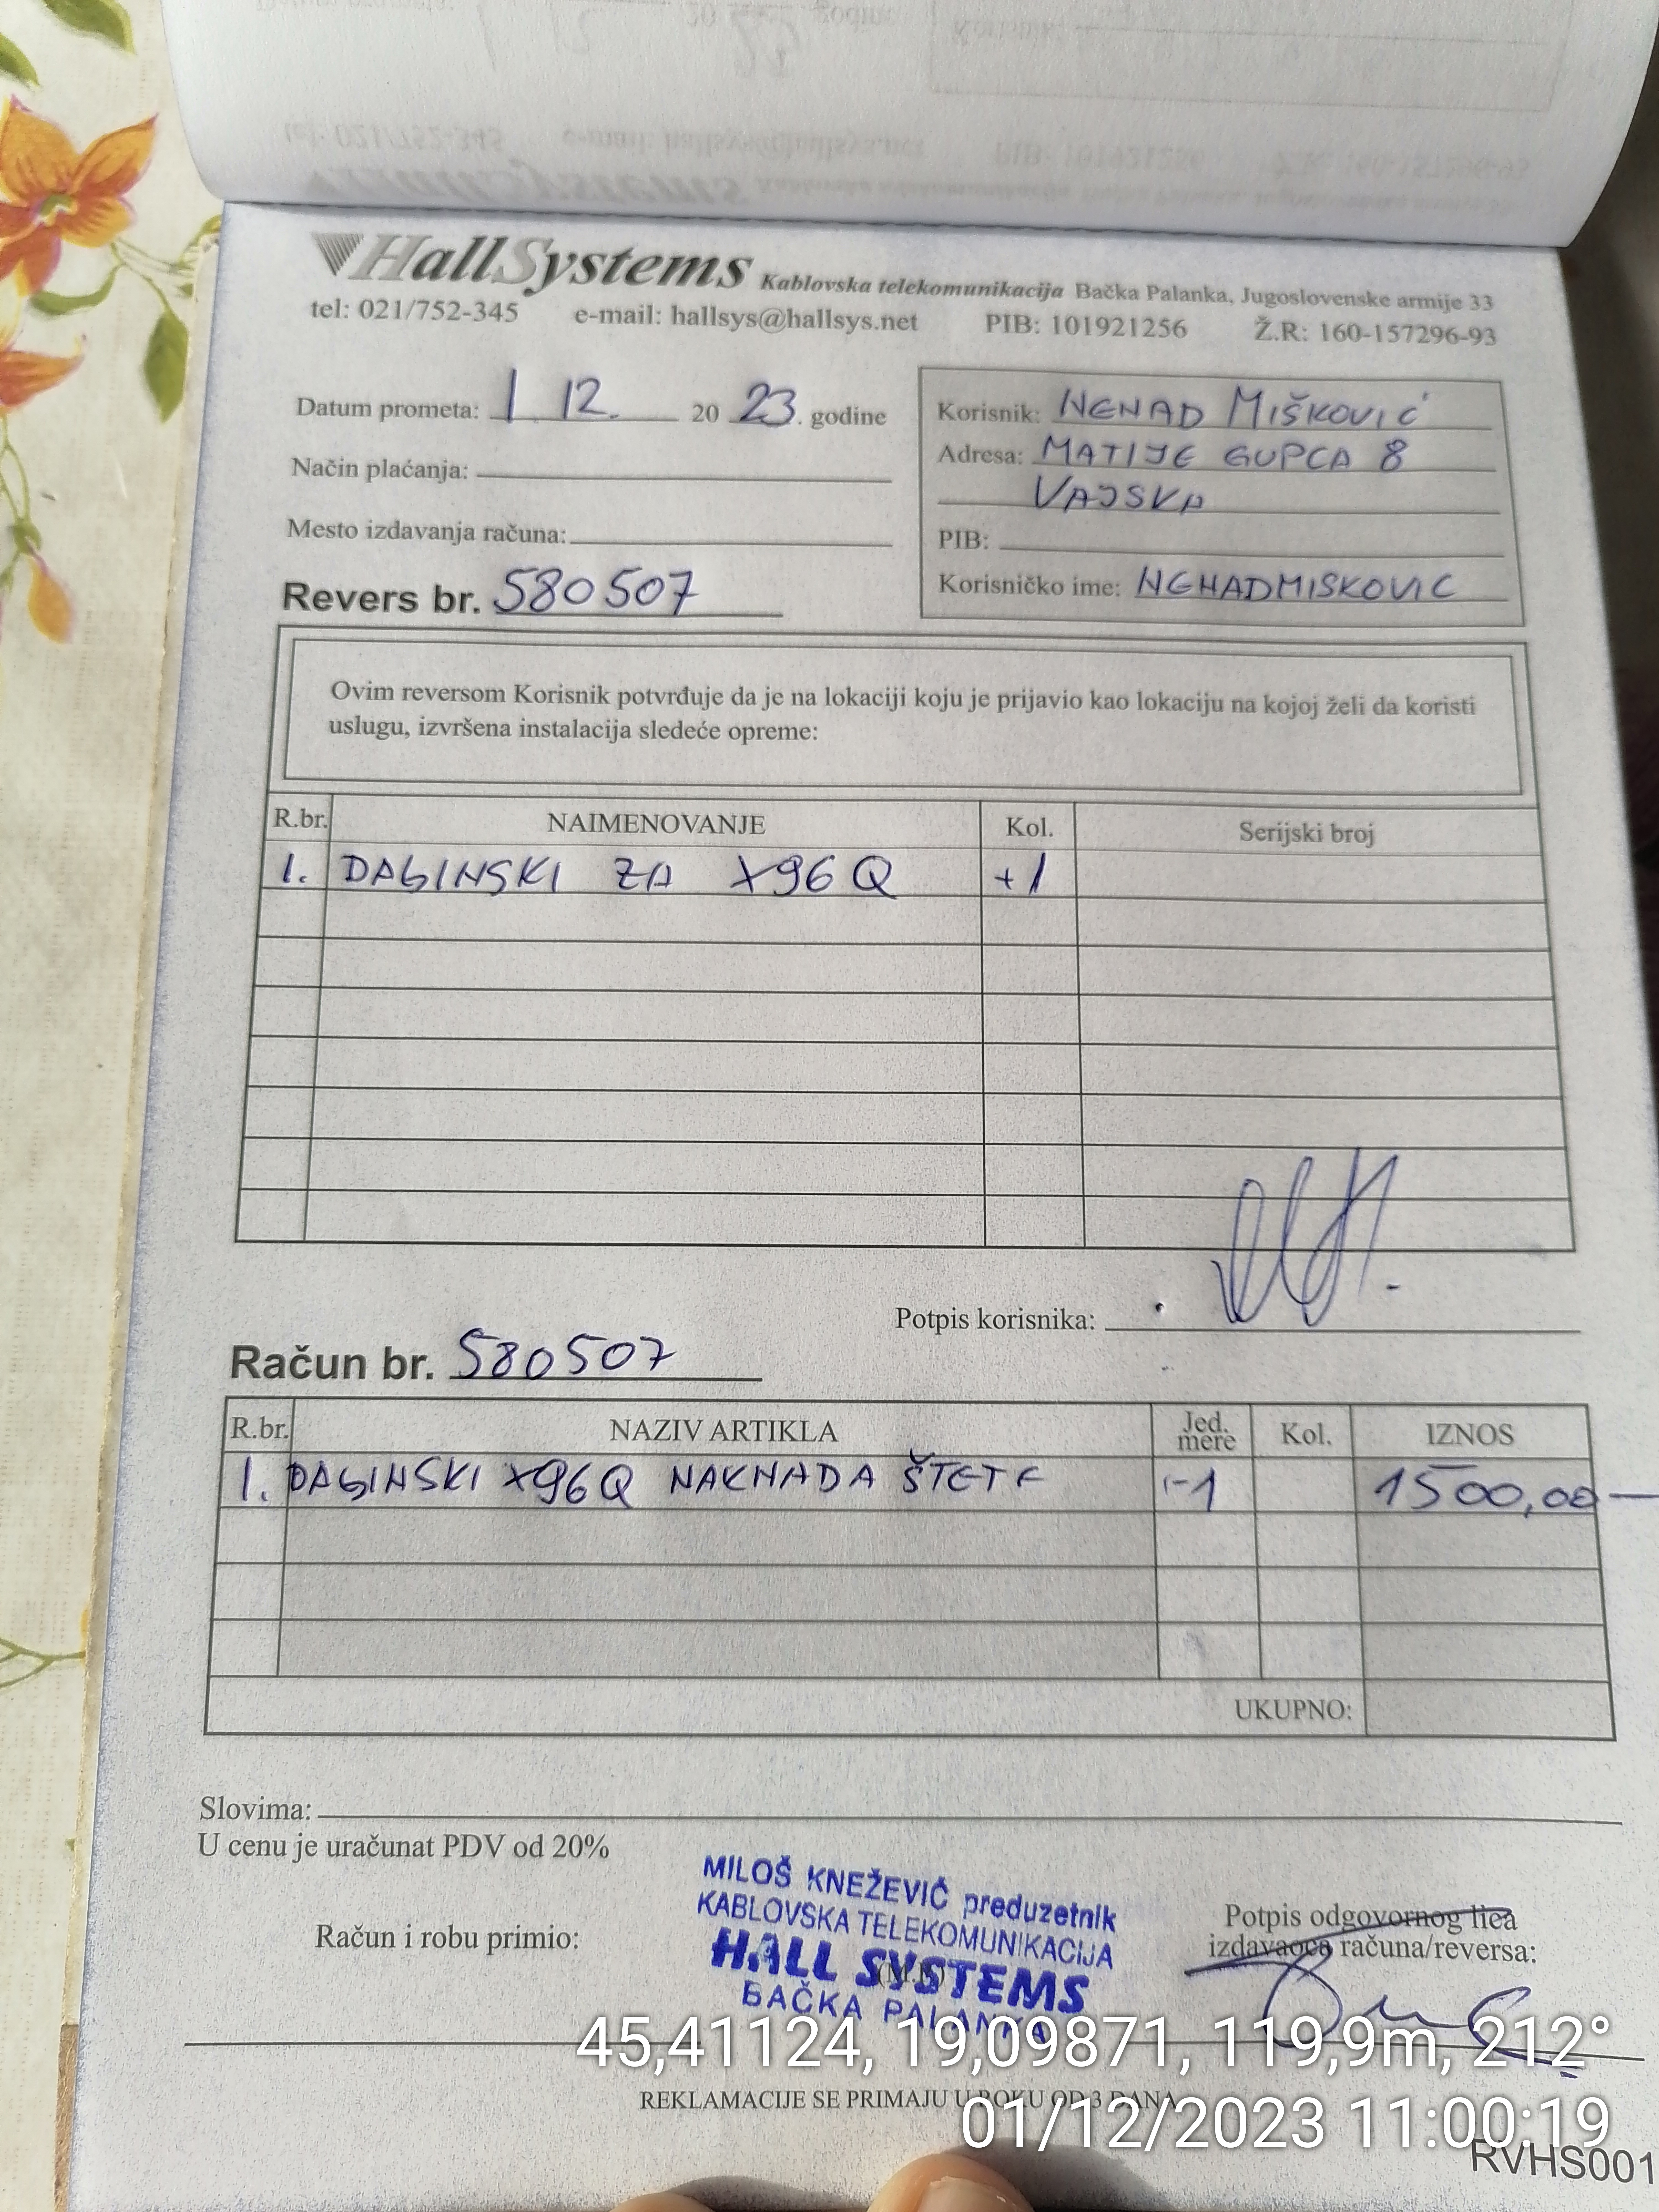 HallSystems Kablovska telekomunikacija Bačka Palanka, Jugoslovenske armije 33
tel: 021/752-345 e-mail: hallsys@hallsys.net PIB: 101921256 Ž.R: 160-157296-93
Datum prometa: 1 12. 20 23. godine
Način plaćanja:
Mesto izdavanja računa:
Revers br. 580507
Korisnik: NENAD MIŠKOVIĆ
Adresa: MATIJE GUPCA 8
VAJSKA
PIB:
Korisničko ime: NENADMISKOVIC
Ovim reversom Korisnik potvrđuje da je na lokaciji koju je prijavio kao lokaciju na kojoj želi da koristi
uslugu, izvršena instalacija sledeće opreme:
R.br. NAIMENOVANJE Kol. Serijski broj
1. DAGINSKI ZA X96Q +1
Potpis korisnika:
Račun br. 580507
R.br. NAZIV ARTIKLA Jed. mere Kol. IZNOS
1. DAGINSKI X96Q NAKNADA ŠTETE -1 1500,00
UKUPNO:
Slovima:
U cenu je uračunat PDV od 20%
Račun i robu primio:
MILOŠ KNEŽEVIĆ preduzetnik
KABLOVSKA TELEKOMUNIKACIJA
HALL SYSTEMS
BAČKA PALANKA
Potpis odgovornog lica
izdavaoca računa/reversa:
45,41124, 19,09871, 119,9m, 212°
REKLAMACIJE SE PRIMAJU U ROKU OD 3 DANA
01/12/2023 11:00:19
RVHS001